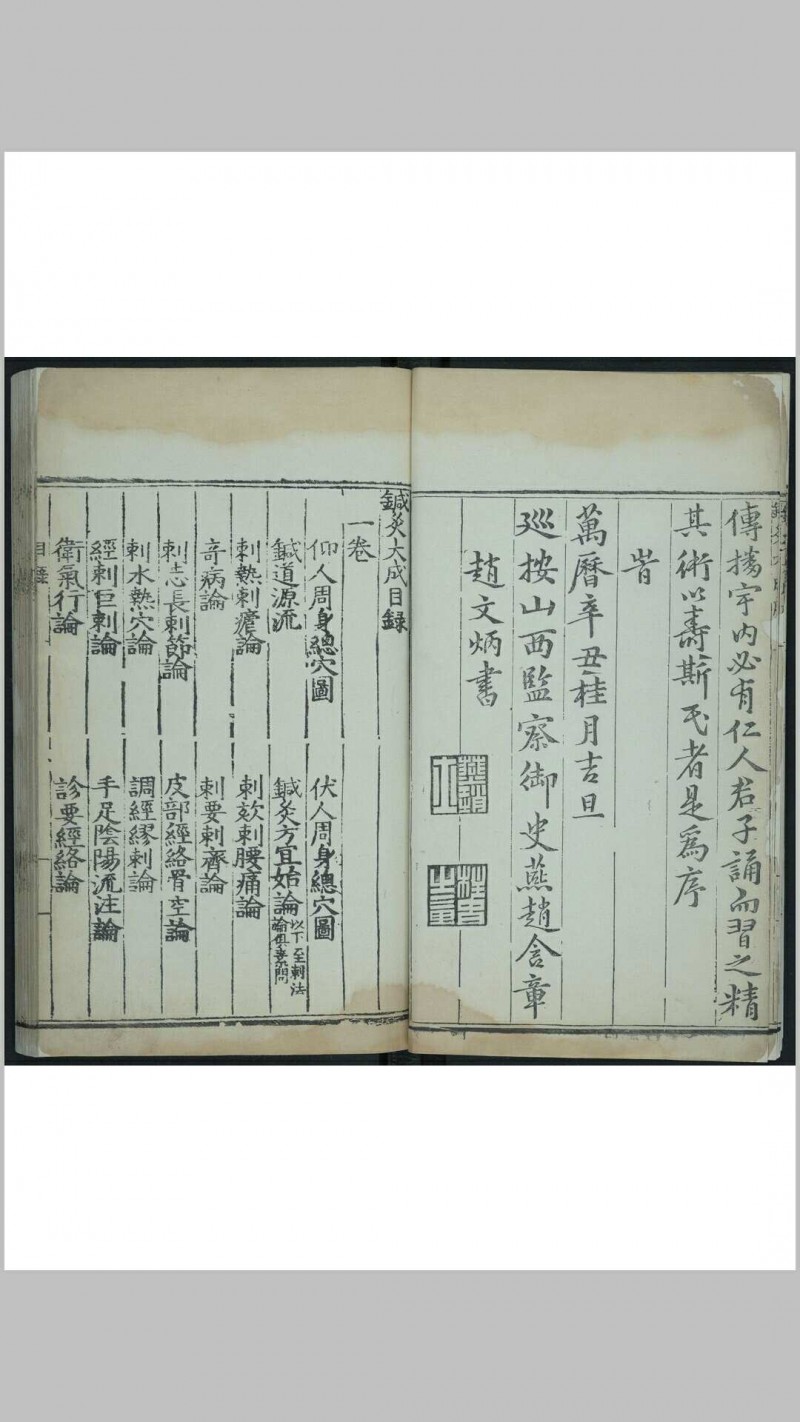 傳播宇內必有仁人君子誦而習之精
其術以壽斯民者是為序
旹
萬曆辛丑桂月吉旦
巡按山西監察御史燕趙含章
趙文炳書
鍼灸大成目錄
一卷
仰人周身總穴圖　伏人周身總穴圖
鍼道源流　鍼灸方宜始論以下至刺法論俱素問
刺熱刺瘧論　刺欬刺腰痛論
奇病論　刺要刺齊論
刺志長刺節論　皮部經絡骨空論
刺水熱穴論　調經繆刺論
經刺巨刺論　手足陰陽流注論
衛氣行論　診要經絡論
目錄